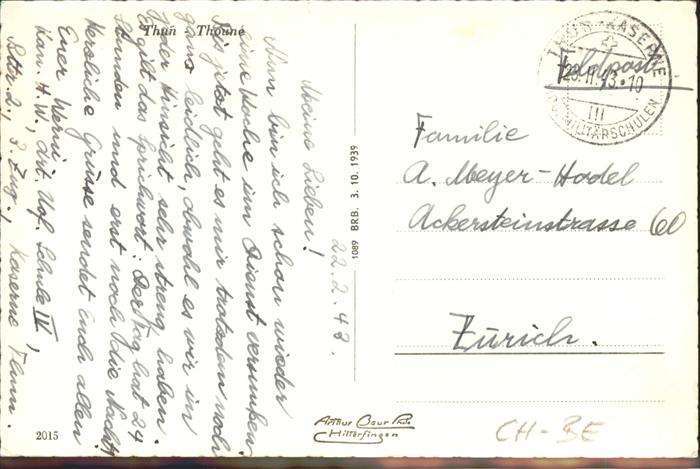 Thun Thoune
22.2.43.
Meine Lieben!
Nun bin ich schon wieder
eine Woche im Dienst versunken.
Bis jetzt geht es mir trotzdem noch
ganz leidlich, obwohl es wir in
jeder Hinsicht sehr streng haben.
Es gilt das Sprichwort: Der Tag hat 24
Stunden und erst noch die Nacht!
Herzliche Grüsse sendet Euch allen
Euer Werni
Kan. H.W., Art. Uof. Schule IV,
Bttr. 2, 3. Zug, Kaserne Thun.
2015
1089 BRB. 3. 10. 1939
THUN - KASERNE
23.II.43.-10
III
MILITÄRSCHULEN
Feldpost
Familie
A. Meyer-Hodel
Ackersteinstrasse 60
Zürich.
Arthur
Hilterfingen
CH-BE